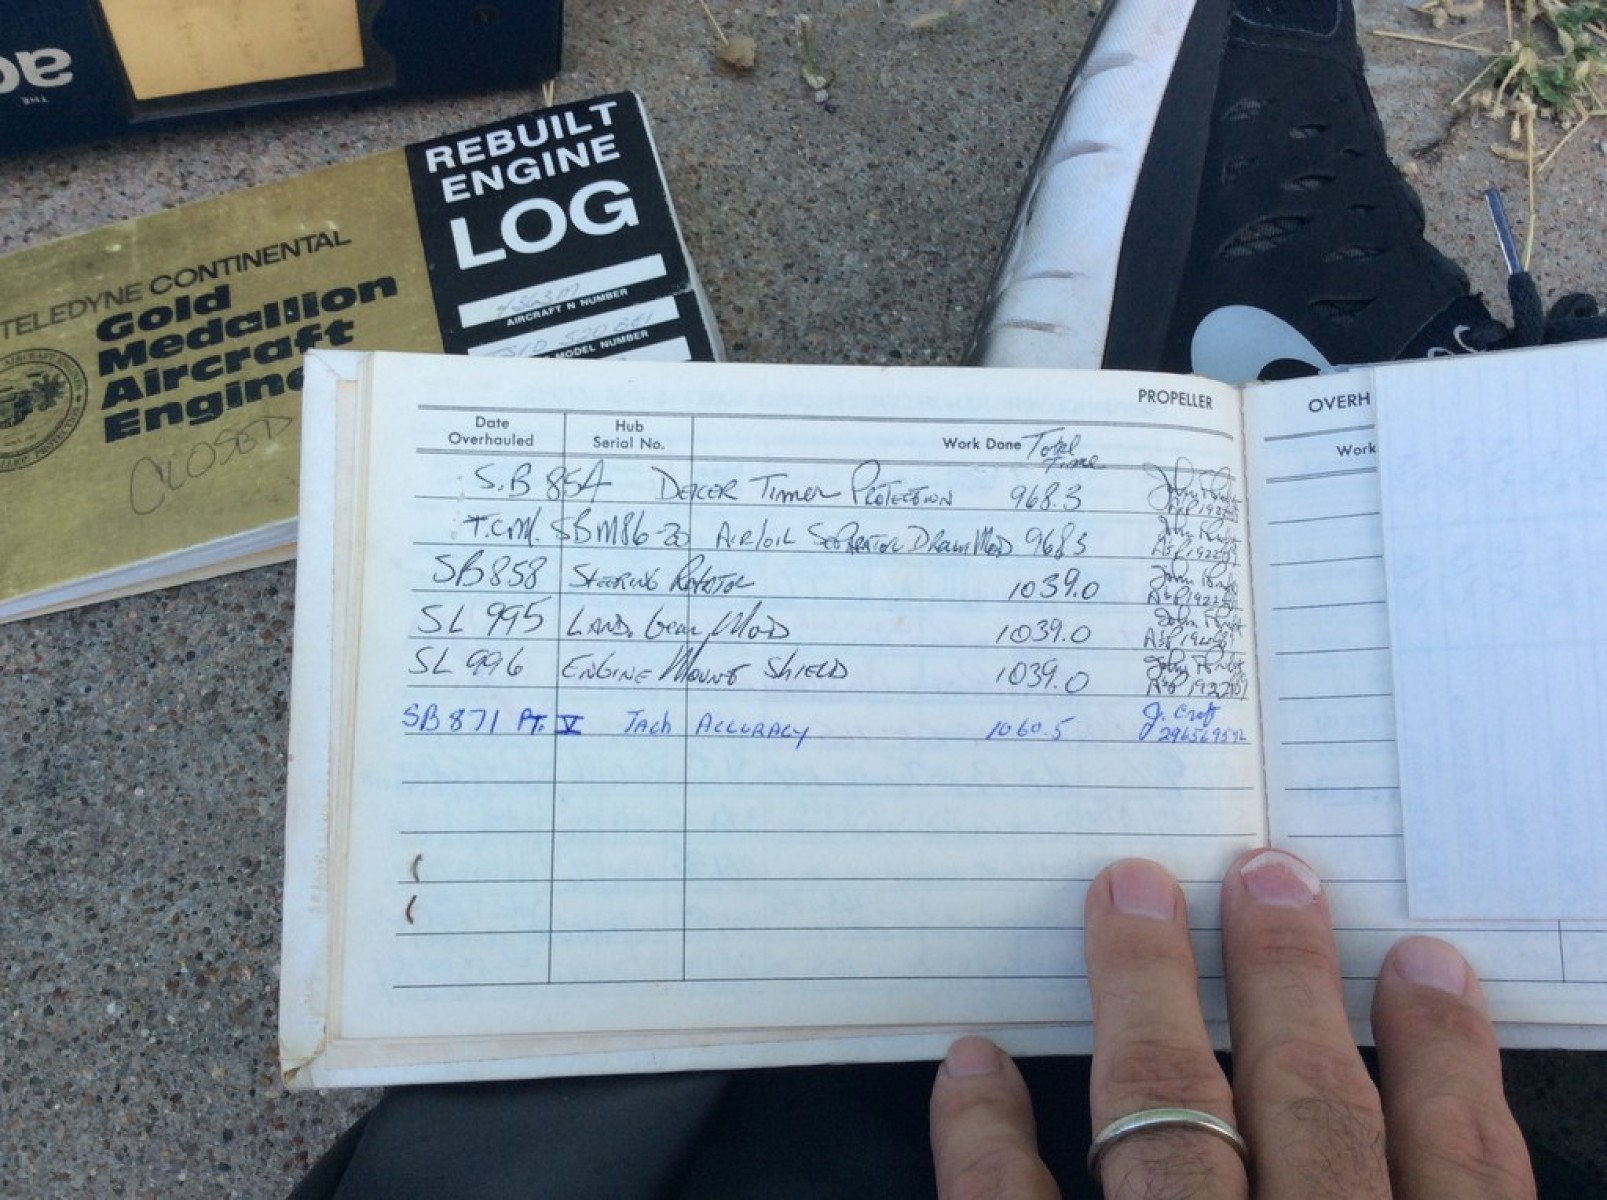 THE
REBUILT
ENGINE
LOG
AIRCRAFT N NUMBER
MODEL NUMBER
TELEDYNE CONTINENTAL
Gold
Medallion
Aircraft
Engine
CLOSED
PROPELLER
OVERH
Date Overhauled Hub Serial No. Work Done Total Time
Work
S.B 85A Deicer Timer Protection 968.3
T.C.M. SBM86-20 Air/oil Separator Drain Mod 968.3
SB 858 Steering Rotator 1039.0
SL 995 Land. Gear Mod 1039.0
SL 996 Engine Mount Shield 1039.0
SB 871 Pt. V Tach Accuracy 1060.5 J. Croft